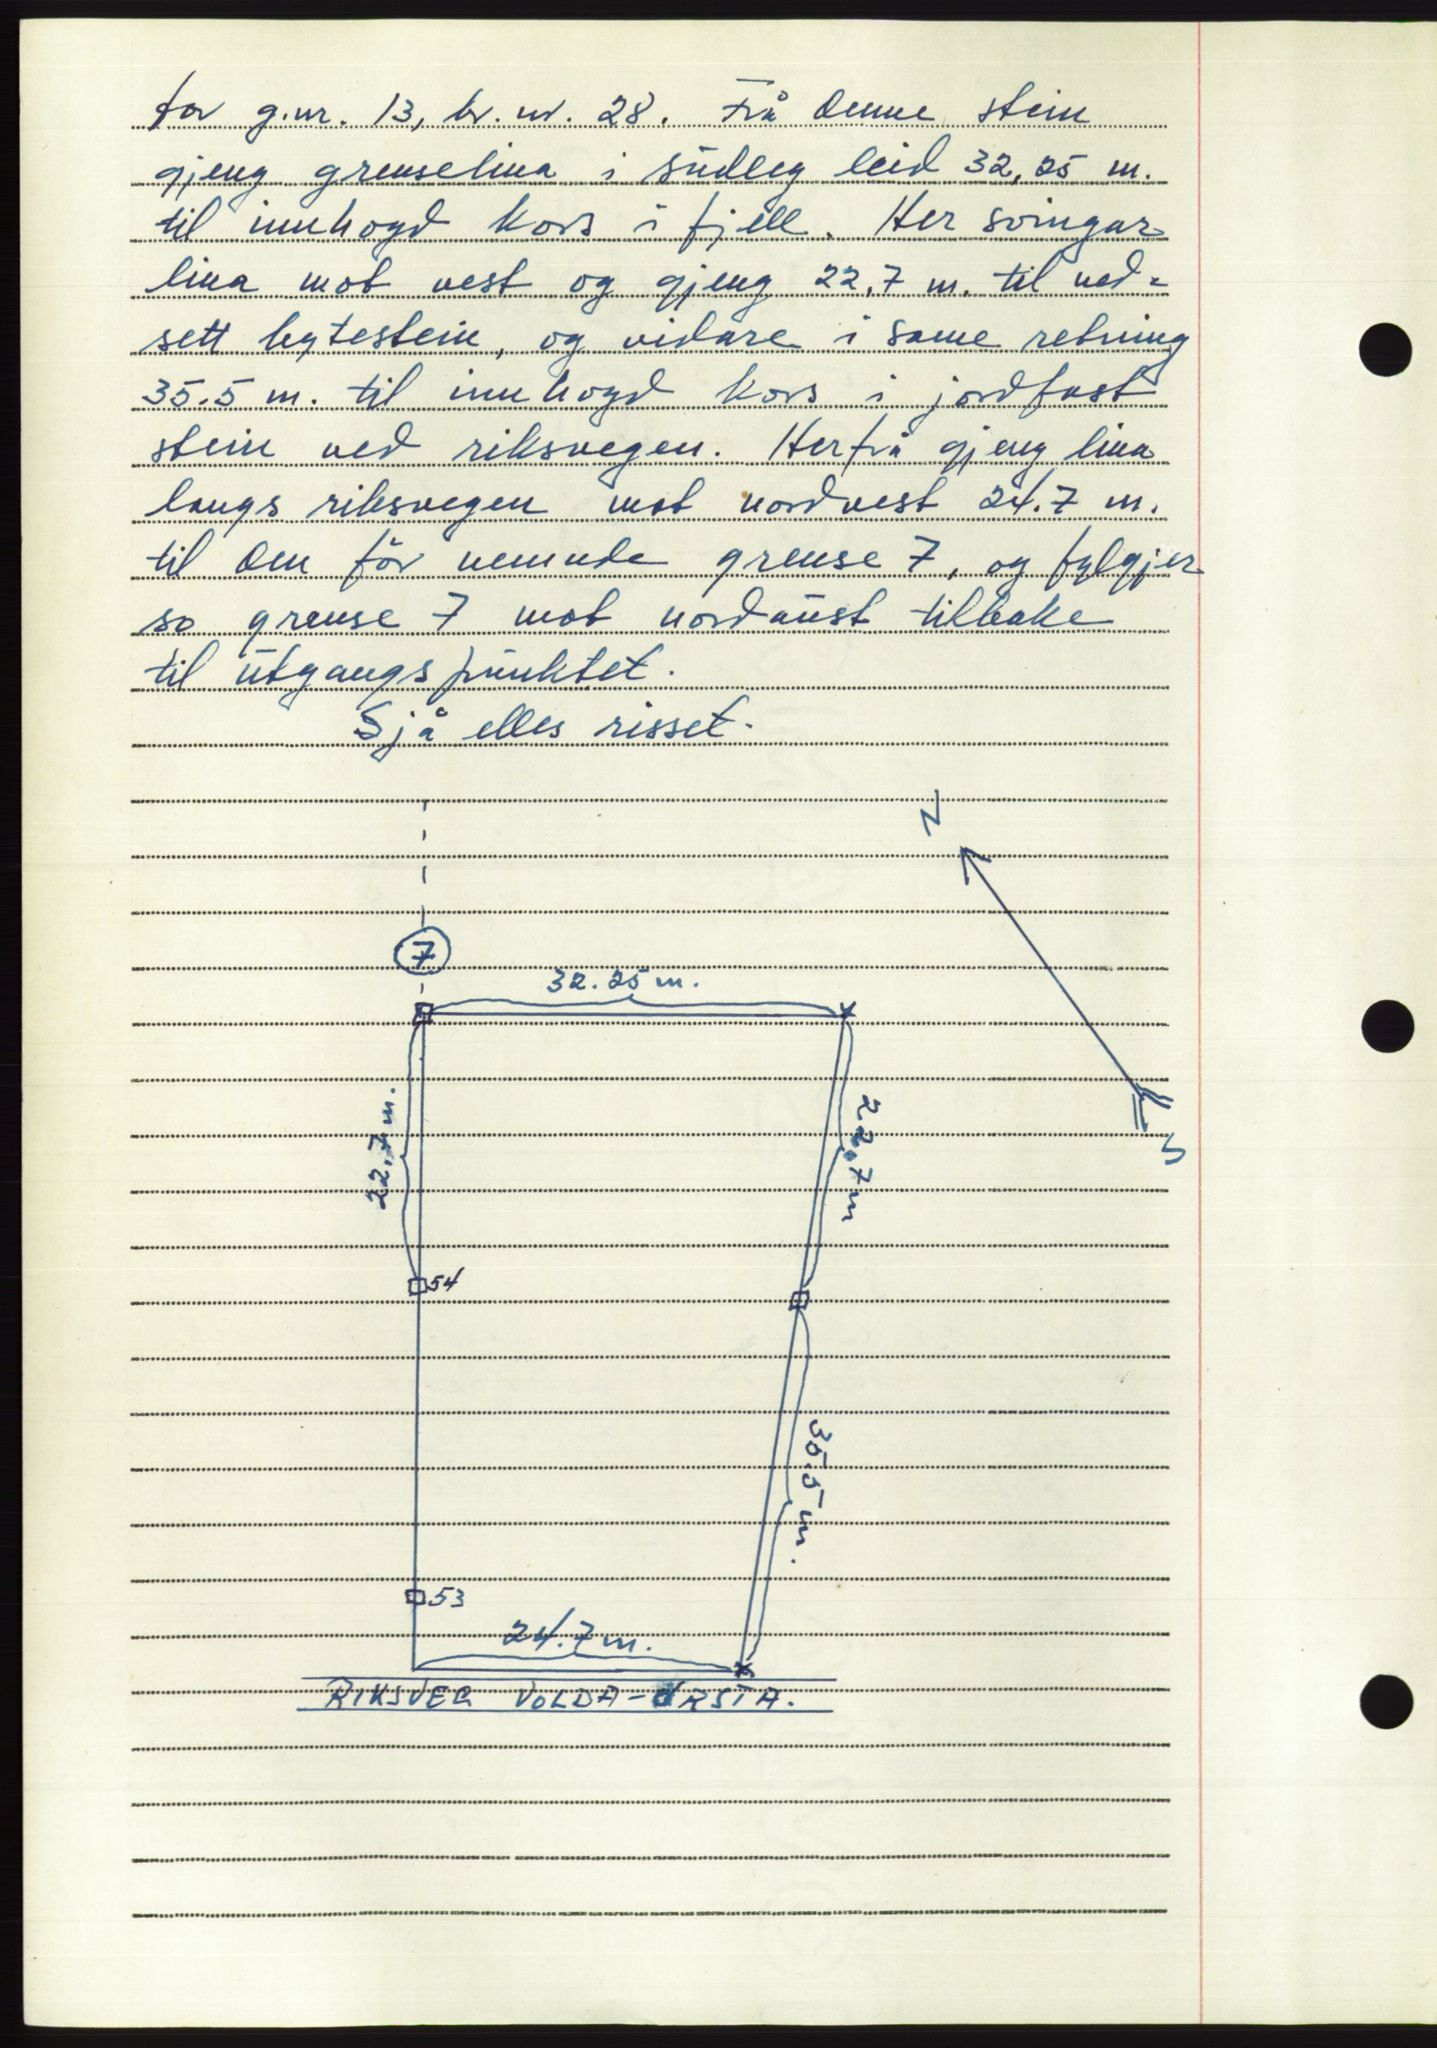 for g.nr. 13, br. nr. 28. Frå denne stein
gjeng grenselina i sudleg leid 32,25 m.
til innhogd kors i fjell. Her svingar
lina mot vest og gjeng 22,7 m. til ned-
sett bytestein, og vidare i same retning
35.5 m. til innhogd kors i jordfast
stein ved riksvegen. Herfrå gjeng lina
langs riksvegen mot nordvest 24.7 m.
til den för nemnde grense 7, og fylgjer
so grense 7 mot nordaust tilbake
til utgangspunktet.
Sjå elles risset.
N
7
32.25 m.
22,7 m.
22,7 m
S
54
35.5 m.
53
24.7 m.
RIKSVEG VOLDA-ØRSTA.